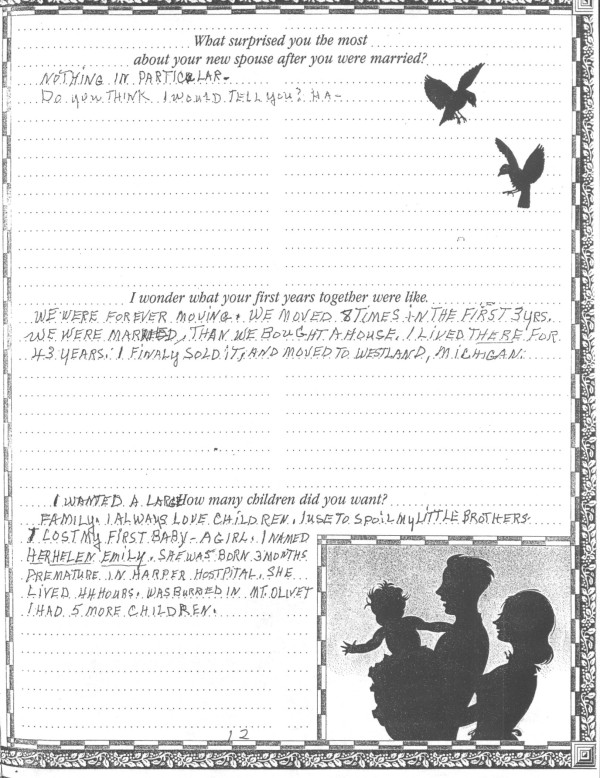 What surprised you the most
about your new spouse after you were married?
NOTHING IN PARTICULAR-
DO YOU THINK I WOULD TELL YOU? HA-
I wonder what your first years together were like.
WE WERE FOREVER MOVING. WE MOVED 8 TIMES IN THE FIRST 3 YRS.
WE WERE MARRIED, THAN WE BOUGHT A HOUSE. I LIVED THERE FOR
43 YEARS. I FINALY SOLD IT, AND MOVED TO WESTLAND, MICHIGAN.
How many children did you want?
I WANTED A LARGE
FAMILY. I ALWAYS LOVE CHILDREN. I USE TO SPOIL MY LITTLE BROTHERS.
I LOST MY FIRST BABY - A GIRL. I NAMED
HER HELEN EMILY. SHE WAS BORN 3 MONTHS
PREMATURE IN HARPER HOSTPITAL. SHE
LIVED 44 HOURS. WAS BURRED IN MT. OLIVET
I HAD 5 MORE CHILDREN.
12